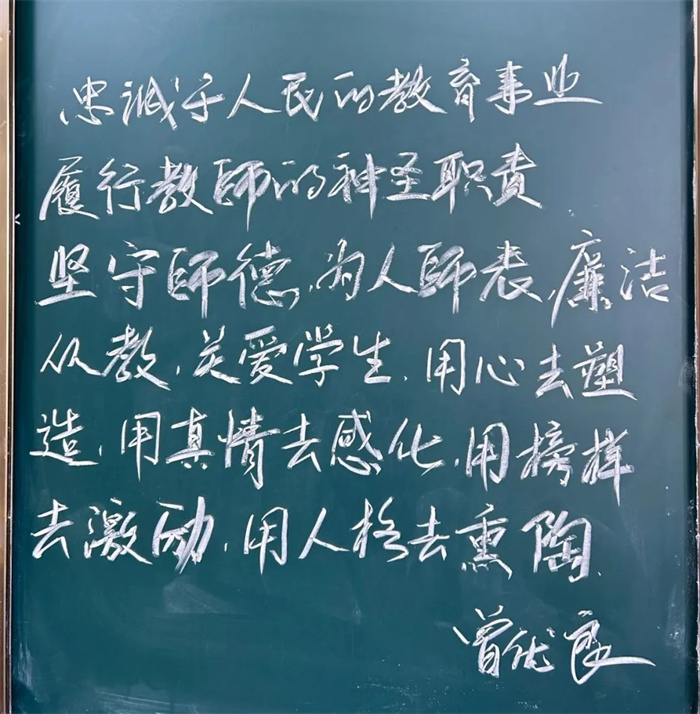 忠诚于人民的教育事业
履行教师的神圣职责
坚守師德,为人師表,廉洁
从教,关爱学生,用心去塑
造,用真情去感化,用榜样
去激励,用人格去熏陶
曾优良